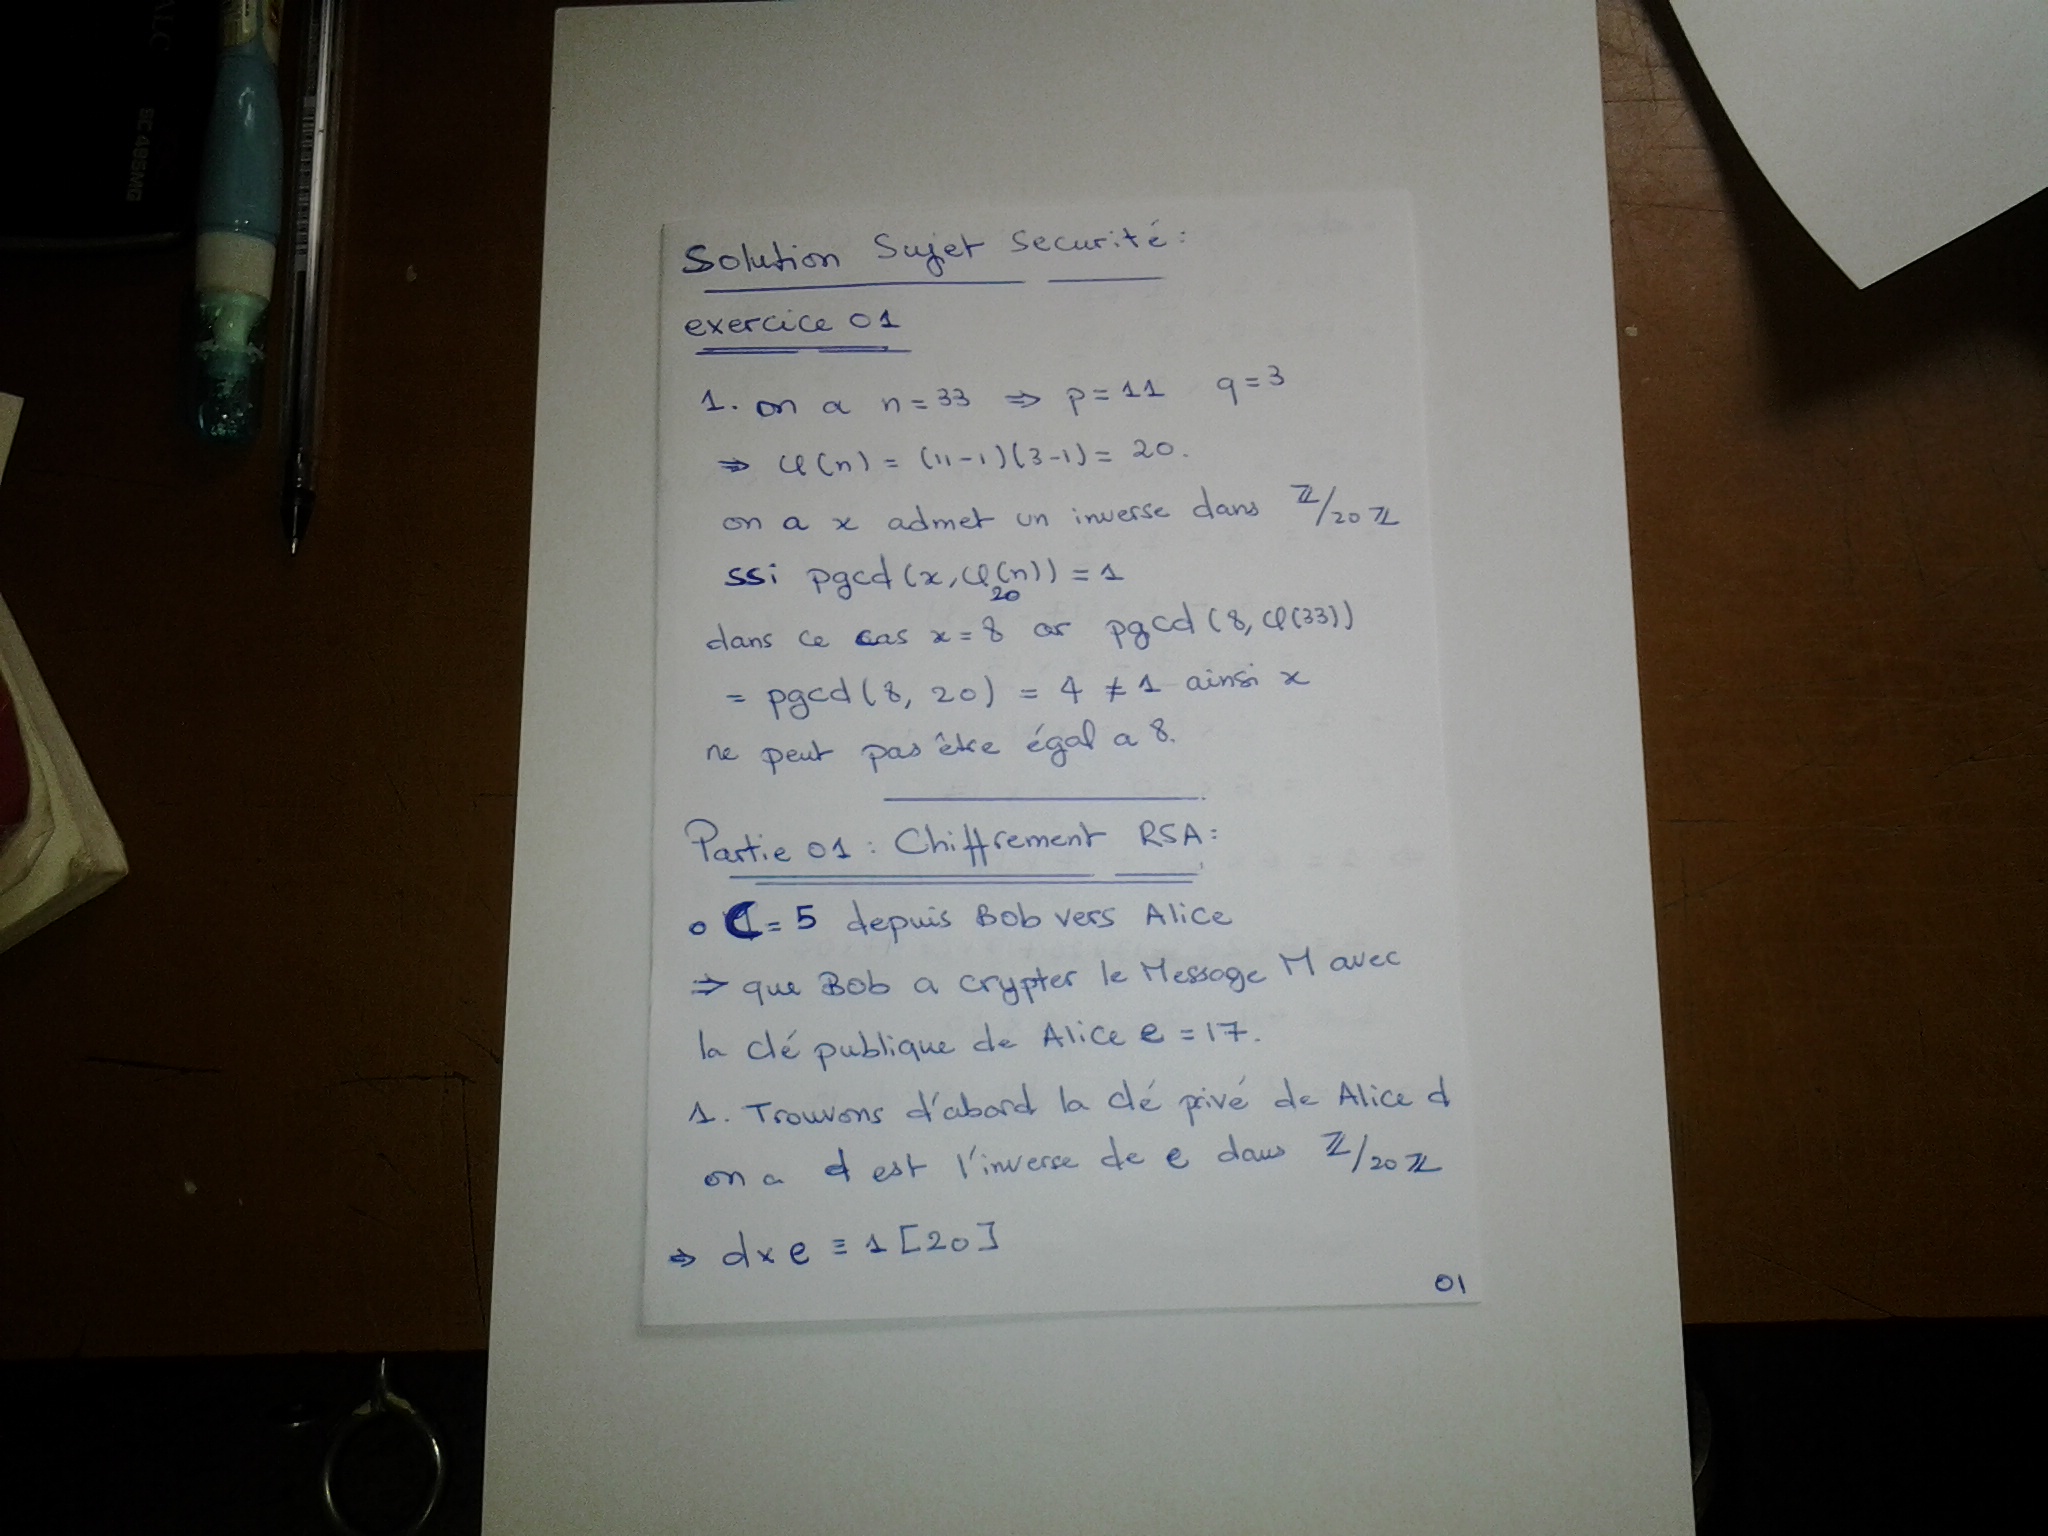 Solution Sujet Securité:
exercice 01
1. on a n = 33 ⇒ p = 11 q = 3
⇒ φ(n) = (11-1)(3-1) = 20.
on a x admet un inverse dans ℤ/20ℤ
ssi pgcd (x, φ(n)) = 1
20
dans ce cas x = 8 or pgcd (8, φ(33))
= pgcd (8, 20) = 4 ≠ 1 ainsi x
ne peut pas être égal a 8.
Partie 01 : Chiffrement RSA:
o C = 5 depuis Bob vers Alice
⇒ que Bob a crypter le Message M avec
la clé publique de Alice e = 17.
1. Trouvons d'abord la clé privé de Alice d
on a d est l'inverse de e dans ℤ/20ℤ
⇒ d x e ≡ 1 [20]
01
SC 495MD